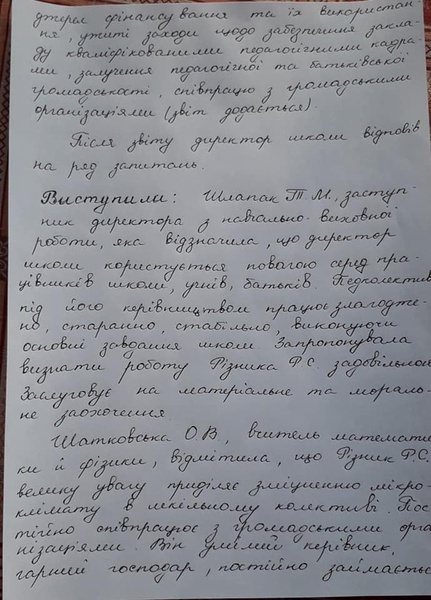 джерел фінансування та їх використан-
ня, ужиті заходи щодо забезпечення закла-
ду кваліфікованими педагогічними кадра-
ми, залучення педагогічної та батьківської
громадськості, співпрацю з громадськими
організаціями (звіт додається).
Після звіту директор школи відповів
на ряд запитань.
Виступили: Шлапак Т.М., заступ-
ник директора з навчально-виховної
роботи, яка відзначила, що директор
школи користується повагою серед пра-
цівників школи, учнів, батьків. Педколектив
під його керівництвом працює злагодже-
но, старанно, стабільно, виконуючи
основні завдання школи. Запропонувала
визнати роботу Різника Ф.С. задовільною.
Заслуговує на матеріальне та мораль-
не заохочення
Шатковська О.В., вчитель математи-
ки й фізики, відмітила, що Різник Ф.С.
велику увагу приділяє зміцненню мікро-
клімату в шкільному колективі. Пос-
тійно співпрацює з громадськими орга-
нізаціями. Він умілий керівник,
гарний господар, постійно займається